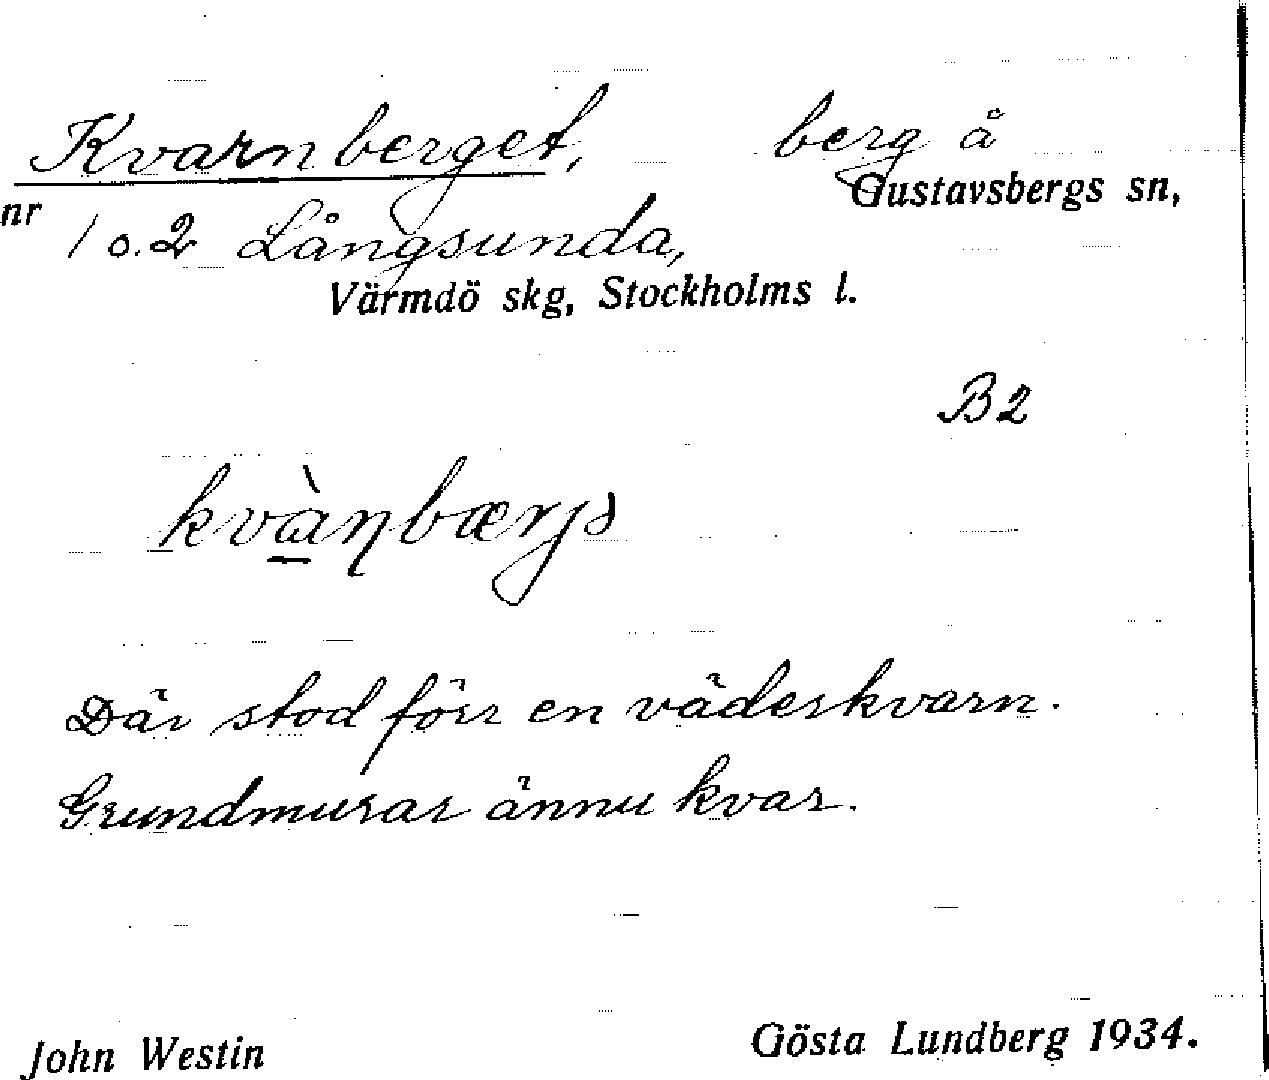 Kvarnberget, berg å
Gustavsbergs sn,
nr 1 o. 2 Långsunda,
Värmdö skg, Stockholms l.
B2
Där stod förr en väderkvarn.
Grundmurar ännu kvar.
John Westin Gösta Lundberg 1934.